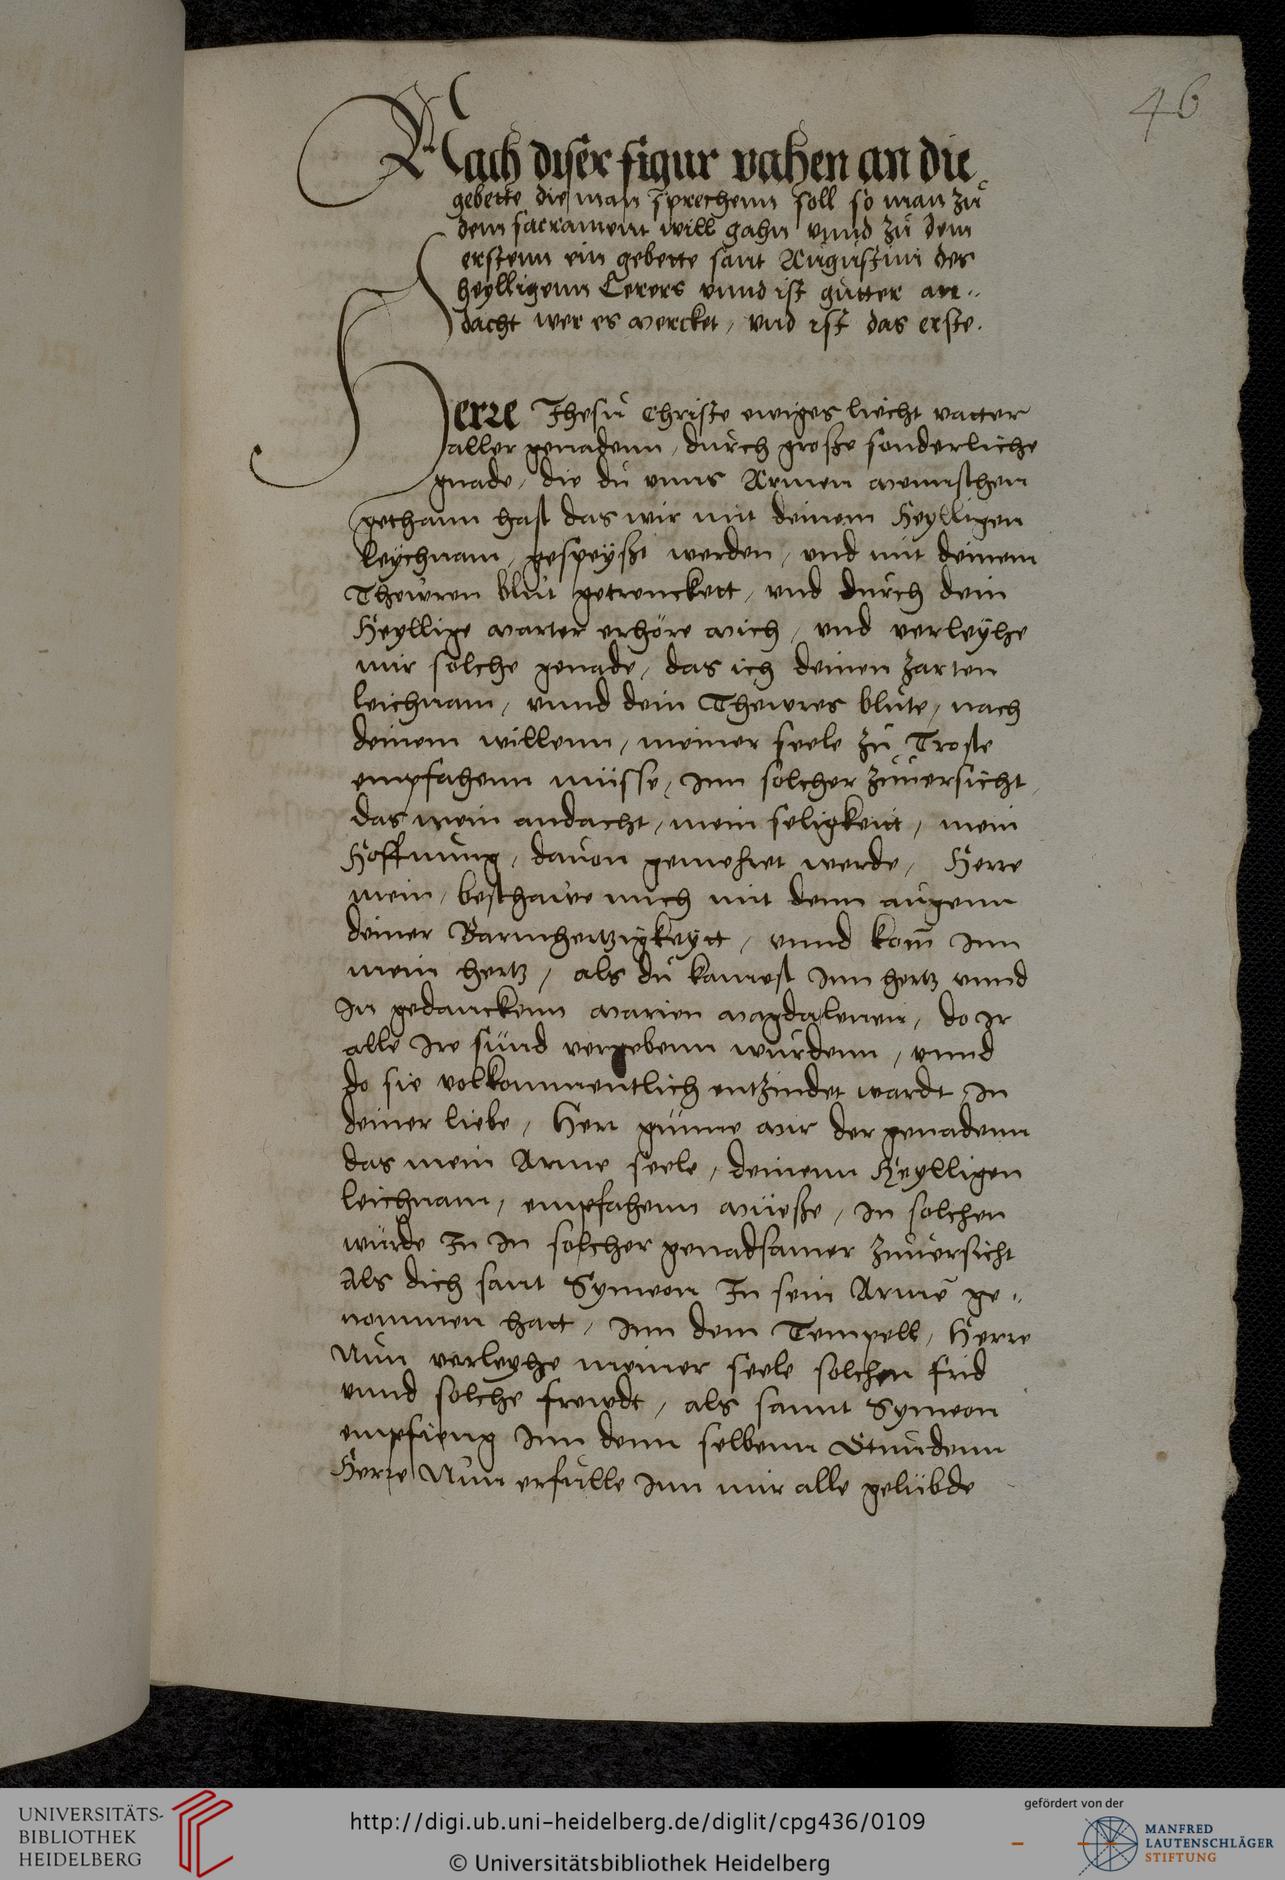 46
Nach diser figur vahen an die
gebette die man sprechenn soll so man zů
dem sacrament will gahn vnnd zů dem
erstenn ein gebette sant Augustini des
heylligenn Lerers vnnd ist gůtter an-
dacht wer es mercket, vnd ist das erste.
Herre Jhesu Christe ewiges liecht vatter
aller genadenn, durch große sonderliche
gnade, die du vnns Armen mennschen
gethann hast das wir mit deinem Heylligen
leychnam, gespeyßt werden, vnd mit deinem
Thewren blut getrenckett, vnd durch dein
Heyllige marter erhöre mich, vnd verleyhe
mir solche genade, das ich deinen zarten
leichnam, vnnd dein Thewres blute, nach
deinem willenn, meiner seele zu Troste
empfahenn müsse, Inn solcher zuuersicht,
das mein andacht, mein seligkeitt, mein
Hoffnung, dauon gemehret werde, Herre
mein, beschawe mich mit denn augenn
deiner Barmhertzigkeytt, vnnd kom̄ Inn
mein hertz, als du kamest Inn hertz vnnd
In gedanckenn marien magdalenen, do Ir
alle Ire sünd vergebenn wurdenn, vnnd
do sie volkommentlich entzindet wardt In
deiner liebe, Herr günne mir der genadenn
das mein Arme seele, deinenn Heylligen
leichnam, empfahenn müeße, In solchen
würde In In solcher genadsamer zuuersicht
Als dich sant Symeon In sein Arme͂ ge-
nommen hatt, Inn dem Tempell, Herre
Nun verleyhe meiner seele solchen frid
vnnd solche frewdt, als sannt Symeon
empfieng Inn denn selbenn Stundenn
Herre Nun erfulle Inn mir alle gelübde
UNIVERSITÄTS-
BIBLIOTHEK
HEIDELBERG
http://digi.ub.uni-heidelberg.de/diglit/cpg436/0109
© Universitätsbibliothek Heidelberg
gefördert von der
MANFRED
LAUTENSCHLÄGER
STIFTUNG